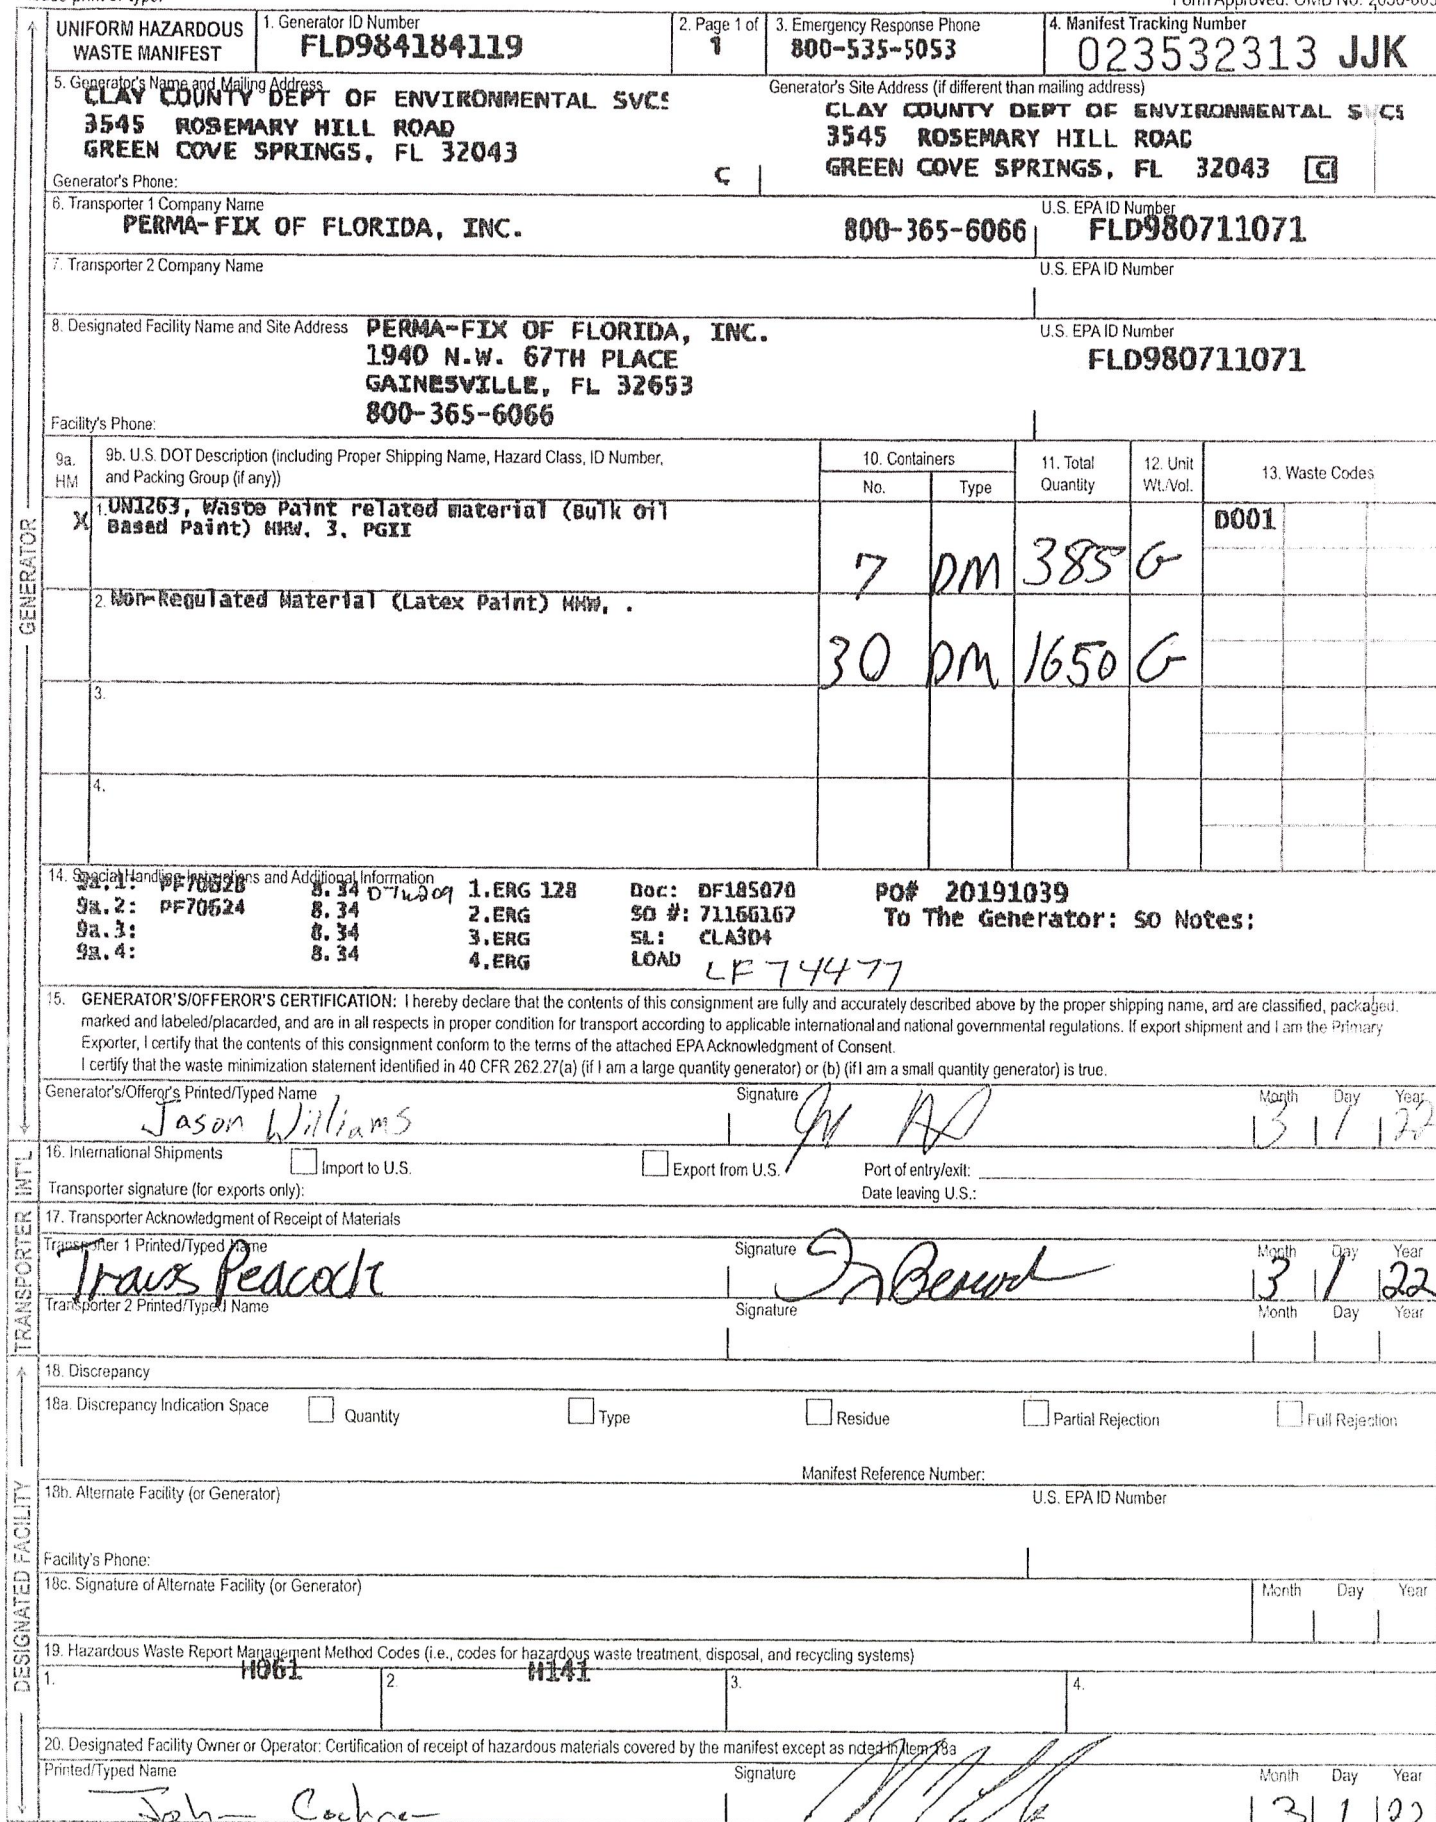 UNIFORM HAZARDOUS
WASTE MANIFEST
1. Generator ID Number
FLD984184119
2. Page 1 of
1
3. Emergency Response Phone
800-535-5053
4. Manifest Tracking Number
023532313 JJK
5. Generator's Name and Mailing Address
CLAY COUNTY DEPT OF ENVIRONMENTAL SVCS
3545 ROSEMARY HILL ROAD
GREEN COVE SPRINGS, FL 32043
Generator's Phone:
C
Generator's Site Address (if different than mailing address)
CLAY COUNTY DEPT OF ENVIRONMENTAL SVCS
3545 ROSEMARY HILL ROAD
GREEN COVE SPRINGS, FL 32043 C
6. Transporter 1 Company Name
PERMA-FIX OF FLORIDA, INC.
800-365-6066
U.S. EPA ID Number
FLD980711071
7. Transporter 2 Company Name
U.S. EPA ID Number
8. Designated Facility Name and Site Address
PERMA-FIX OF FLORIDA, INC.
1940 N.W. 67TH PLACE
GAINESVILLE, FL 32653
800-365-6066
Facility's Phone:
U.S. EPA ID Number
FLD980711071
9a.
HM
9b. U.S. DOT Description (including Proper Shipping Name, Hazard Class, ID Number,
and Packing Group (if any))
10. Containers
No.
Type
11. Total
Quantity
12. Unit
Wt./Vol.
13. Waste Codes
X
1. UN1263, Waste Paint related material (Bulk Oil
Based Paint) HHW, 3, PGII
7 DM 385 G
D001
2. Non-Regulated Material (Latex Paint) HHW, .
30 DM 1650 G
3.
4.
14. Special Handling Instructions and Additional Information
9a.1: PF70628 8.34 1.ERG 128 Doc: DF185070 PO# 20191039
9a.2: PF70624 8.34 2.ERG SO #: 71166167 To The Generator: SO Notes:
9a.3: 8.34 3.ERG SL: CLA3D4
9a.4: 8.34 4.ERG LOAD LF74477
15. GENERATOR'S/OFFEROR'S CERTIFICATION: I hereby declare that the contents of this consignment are fully and accurately described above by the proper shipping name, and are classified, packaged,
marked and labeled/placarded, and are in all respects in proper condition for transport according to applicable international and national governmental regulations. If export shipment and I am the Primary
Exporter, I certify that the contents of this consignment conform to the terms of the attached EPA Acknowledgment of Consent.
I certify that the waste minimization statement identified in 40 CFR 262.27(a) (if I am a large quantity generator) or (b) (if I am a small quantity generator) is true.
Generator's/Offeror's Printed/Typed Name
Jason Williams
Signature
Month Day Year
3 1 22
16. International Shipments
Import to U.S.
Export from U.S.
Port of entry/exit:
Transporter signature (for exports only):
Date leaving U.S.:
17. Transporter Acknowledgment of Receipt of Materials
Transporter 1 Printed/Typed Name
Travis Peacock
Signature
Month Day Year
3 1 22
Transporter 2 Printed/Typed Name
Signature
Month Day Year
18. Discrepancy
18a. Discrepancy Indication Space
Quantity
Type
Residue
Partial Rejection
Full Rejection
Manifest Reference Number:
18b. Alternate Facility (or Generator)
U.S. EPA ID Number
Facility's Phone:
18c. Signature of Alternate Facility (or Generator)
Month Day Year
19. Hazardous Waste Report Management Method Codes (i.e., codes for hazardous waste treatment, disposal, and recycling systems)
1. H061
2. H141
3.
4.
20. Designated Facility Owner or Operator: Certification of receipt of hazardous materials covered by the manifest except as noted in Item 18a
Printed/Typed Name
John
Signature
Month Day Year
3 1 22
GENERATOR
INT'L
TRANSPORTER
DESIGNATED FACILITY